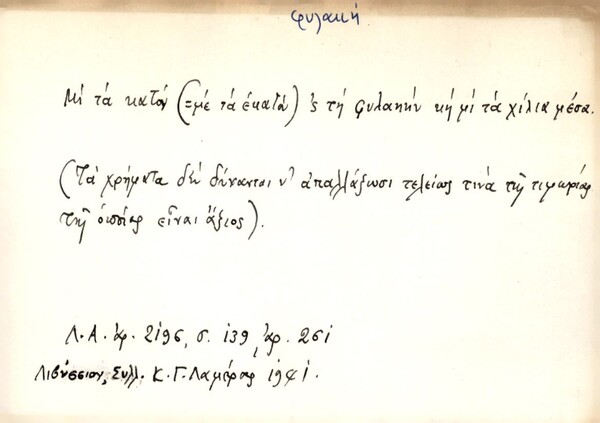 φυλακή
Μί τά κατόν (=μέ τά ἑκατόν) 'ς τή φυλακήν κή μί τά χίλια μέσα.
(Τά χρήματα δέν δύνανται ν' ἀπαλλάξωσι τελείως τινά τῆς τιμωρίας
τῆς ὁποίας εἶναι ἄξιος).
Λ.Α. ἀρ. 2196, σ. 139, ἀρ. 251
Λιβύσσιον, Συλλ. Κ. Γ. Λαμέρας 1941.